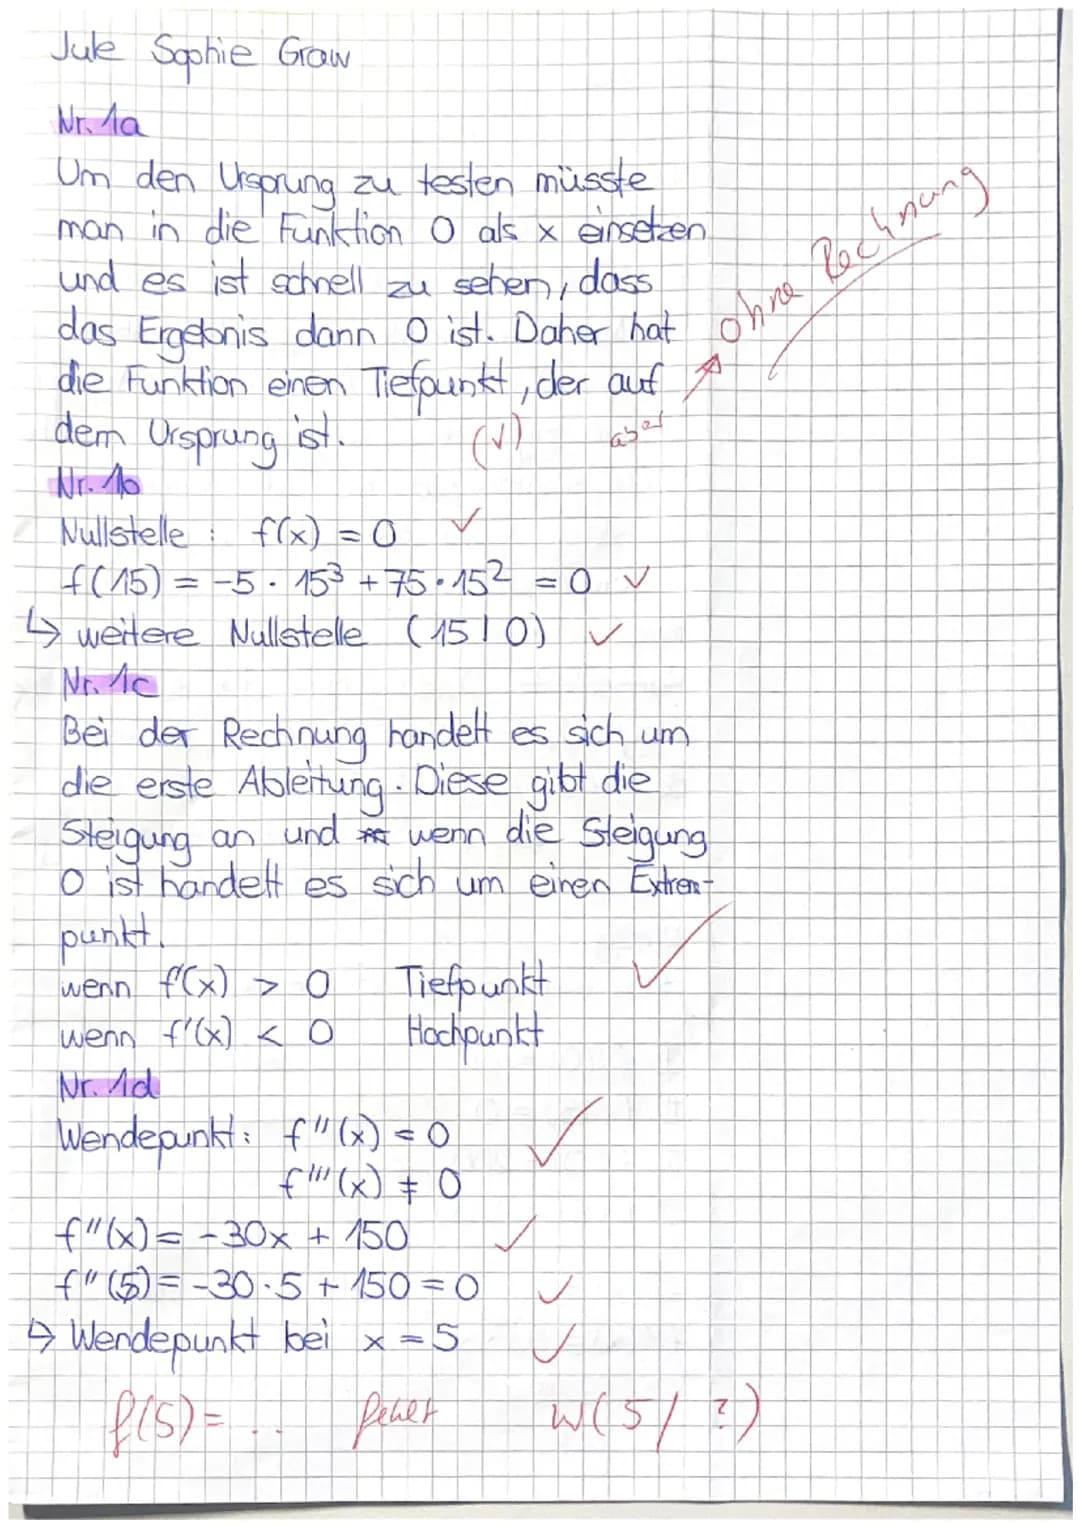 Jule Sophie Graw
Nr. 1a
Um den Ursprung zu testen müsste
man in die Funktion 0 als x einsetzen
und es ist schnell zu sehen, dass
das Ergebnis dann 0 ist. Daher hat
die Funktion einen Tiefpunkt, der auf
dem Ursprung ist. (√) aber
ohne Rechnung
Nr. 1b
Nullstelle : f(x) = 0 ✓
f(15) = -5 · 15³ + 75 · 15² = 0 ✓
↳ weitere Nullstelle (15|0) ✓
Nr. 1c
Bei der Rechnung handelt es sich um
die erste Ableitung. Diese gibt die
Steigung an und wenn die Steigung
0 ist handelt es sich um einen Extrem-
punkt.
wenn f'(x) > 0 Tiefpunkt ✓
wenn f'(x) < 0 Hochpunkt
Nr. 1d
Wendepunkt: f''(x) = 0 ✓
f'''(x) ≠ 0
f''(x) = -30x + 150 ✓
f''(5) = -30 · 5 + 150 = 0 ✓
↳ Wendepunkt bei x = 5 ✓
f(5) = ... fehlt W(5/ ?)